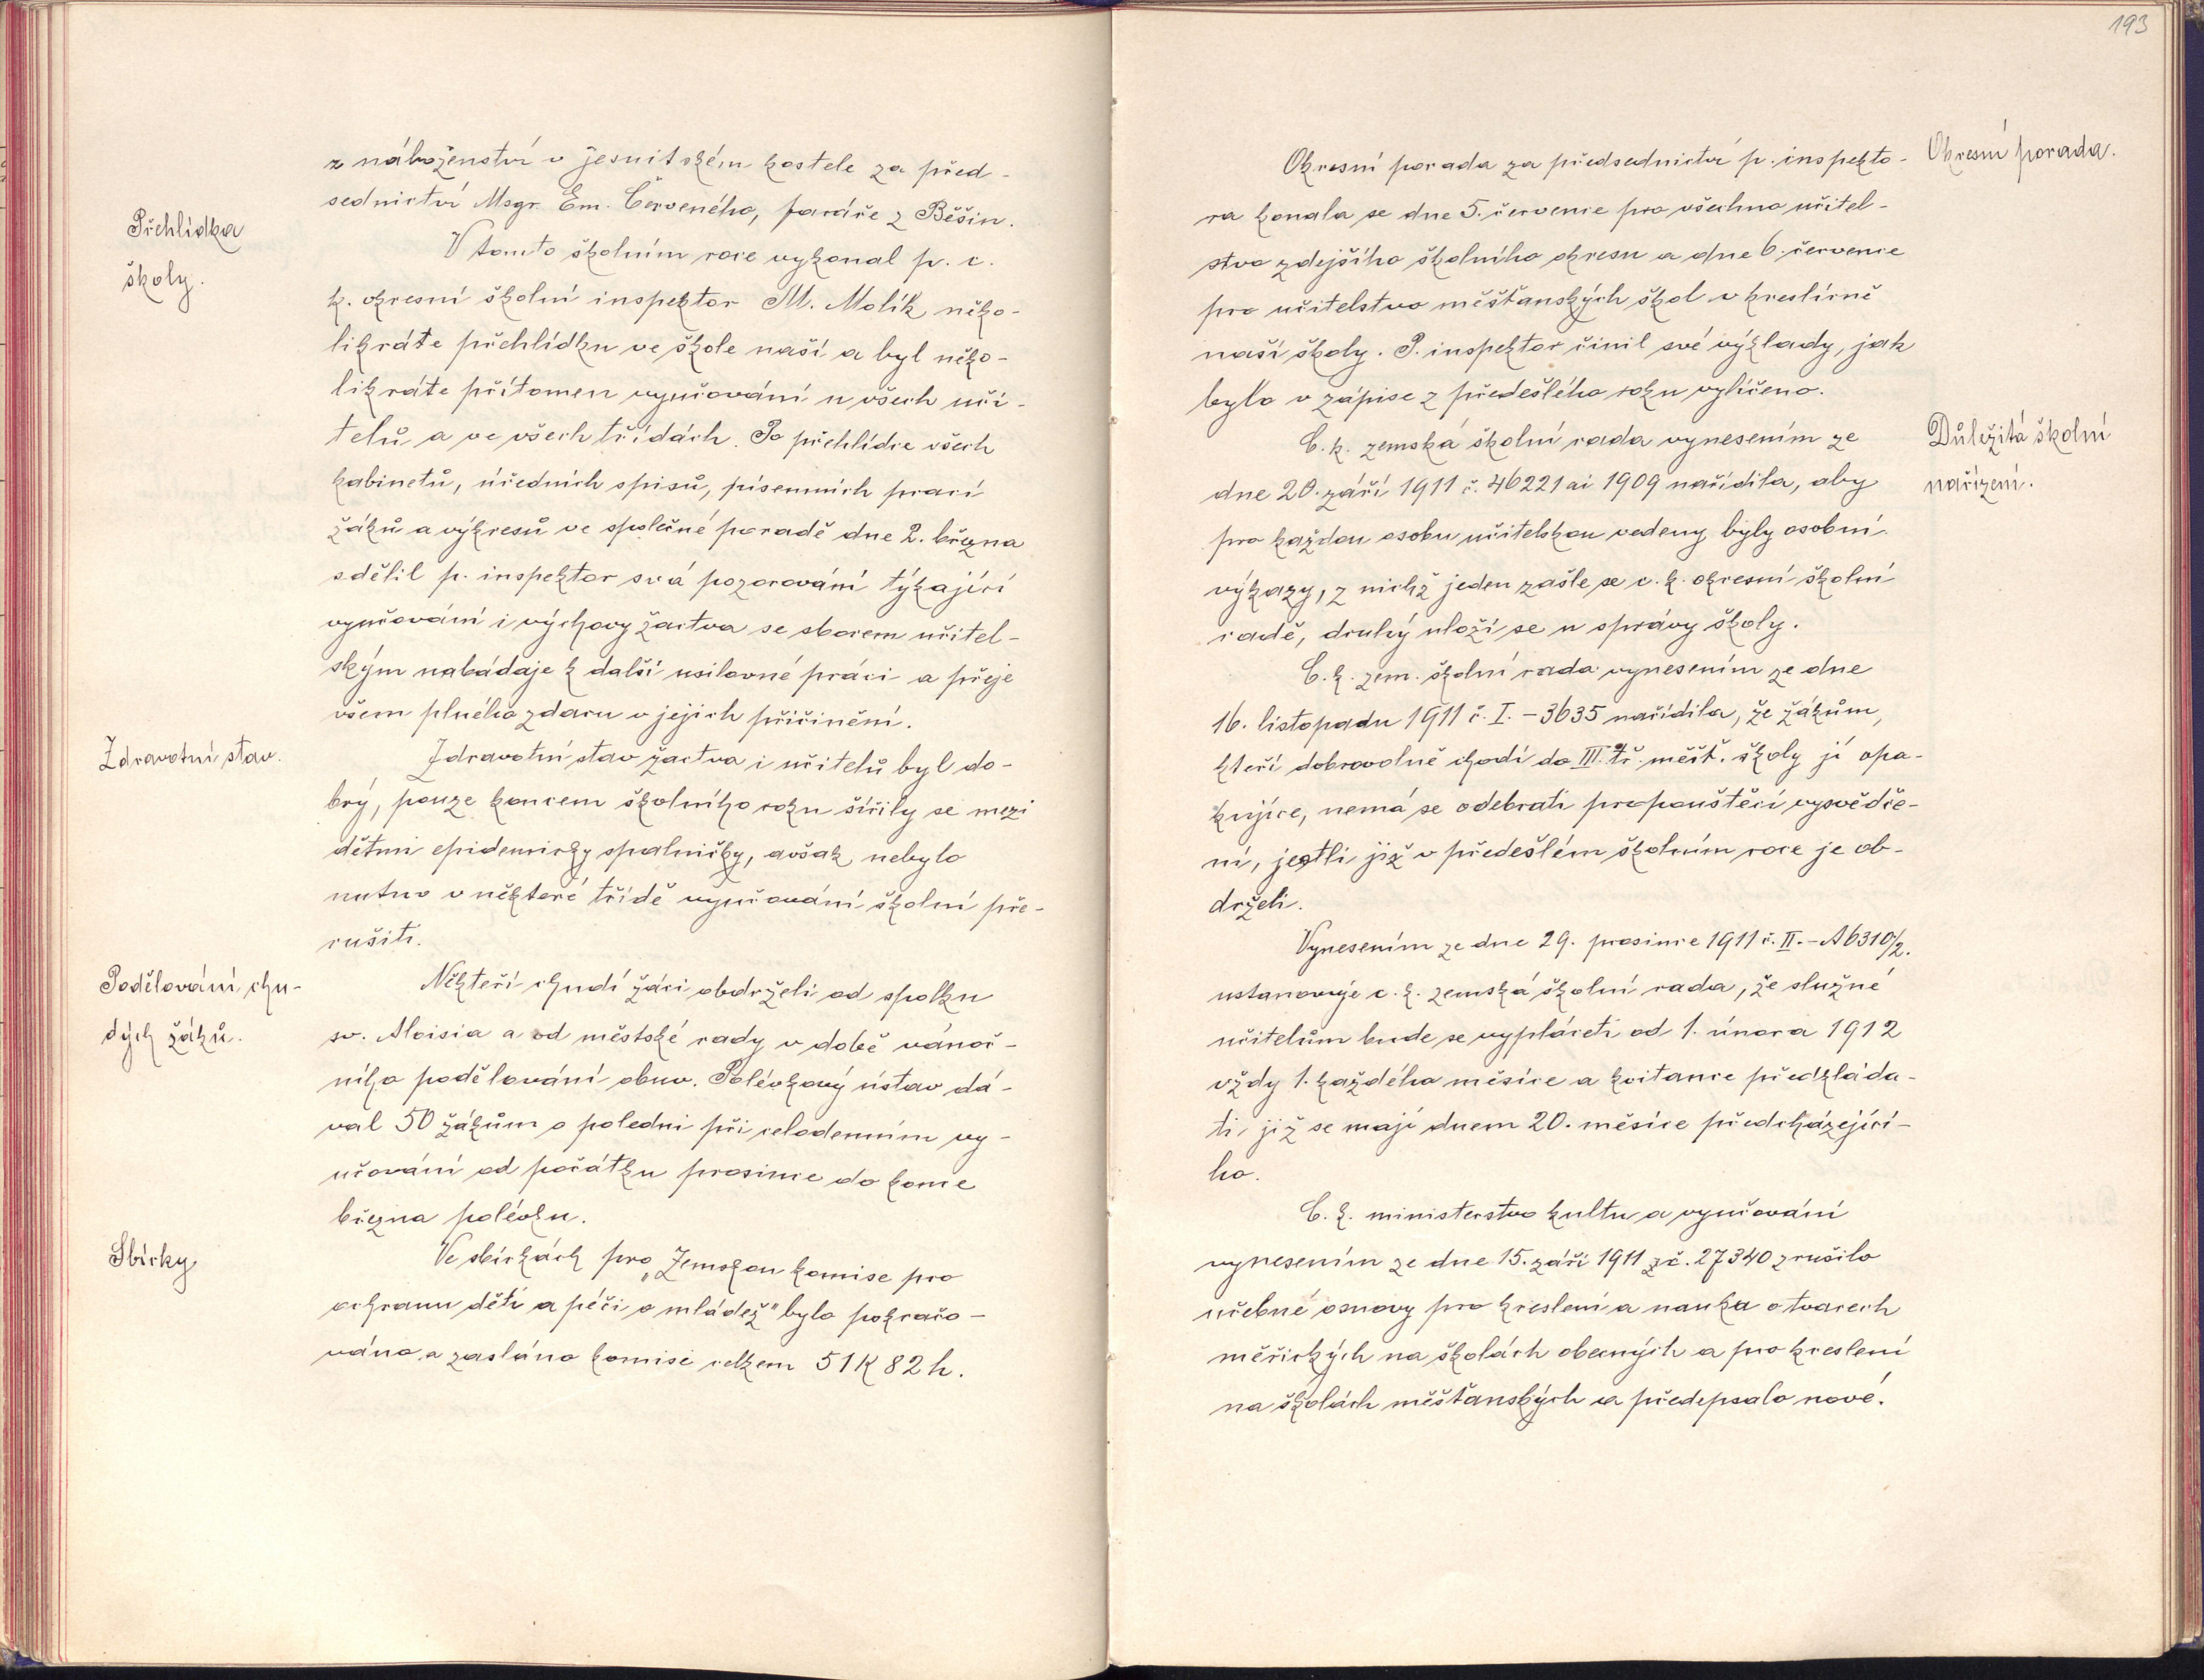 z náboženství v jesuitském kostele za před-
sednictví Msgr. Em. Červeného, faráře z Běšin.
Přehlídka
školy.
V tomto školním roce vykonal p. c.
k. okresní školní inspektor M. Molík něko-
likráte přehlídku ve škole naší a byl něko-
likráte přítomen vyučování u všech uči-
telů a ve všech třídách. Po přehlídce všech
kabinetů, úředních spisů, písemních prací
žáků a výkresů ve společné poradě dne 2. března
sdělil p. inspektor svá pozorování týkající
vyučování i výchovy žactva se sborem učitel-
ským nabádaje k další usilovné práci a přeje
všem plného zdaru v jejich přičinění.
Zdravotní stav.
Zdravotní stav žactva i učitelů byl do-
brý, pouze koncem školního roku šířily se mezi
dětmi epidemicky spalničky, avšak nebylo
nutno v některé třídě vyučování školní pře-
rušiti.
Podělování chu-
dých žáků.
Někteří chudí žáci obdrželi od spolku
sv. Aloisia a od městské rady v době vánoč-
ního podělování obuv. Polévkový ústav dá-
val 50 žákům o poledni při celodenním vy-
učování od počátku prosince do konce
března polévku.
Sbírky
Ve sbírkách pro „Zemskou komise pro
ochranu dětí a péči o mládež" bylo pokračo-
váno a zasláno komisi celkem 51 K 82 h.
193
Okresní porada.
Okresní porada za předsednictví p. inspekto-
ra konala se dne 5. července pro všechno učitel-
stvo zdejšího školního okresu a dne 6. července
pro učitelstvo měšťanských škol v kreslírně
naší školy. P. inspektor činil své výklady, jak
bylo v zápise z předešlého roku vylíčeno.
Důležitá školní
nařízení.
C. k. zemská školní rada vynesením ze
dne 20. září 1911 č. 46221 ai 1909 nařídila, aby
pro každou osobu učitelskou vedeny byly osobní
výkazy, z nichž jeden zašle se c. k. okresní školní
radě, druhý uloží se u správy školy.
C. k. zem. školní rada vynesením ze dne
16. listopadu 1911 č. I. - 3635 nařídila, že žákům,
kteří dobrovolně chodí do III. tř. měšť. školy jí opa-
kujíce, nemá se odebrati propouštěcí vysvědče-
ní, jestli již v předešlém školním roce je ob-
drželi.
Vynesením ze dne 29. prosince 1911 č. II. - A6310/2.
ustanovuje c. k. zemská školní rada, že služné
učitelům bude se vypláceti od 1. února 1912
vždy 1. každého měsíce a kvitance předkláda-
ti již se mají dnem 20. měsíce předcházející-
ho.
C. k. ministerstvo kultu a vyučování
vynesením ze dne 15. září 1911 zč. 27340 zrušilo
učebné osnovy pro kreslení a nauka o tvarech
měřických na školách obecných a pro kreslení
na školách měšťanských a předepsalo nové.